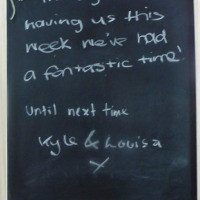 having us this
week we've had
a fantastic time!
Until next time
Kyle & Louisa
X